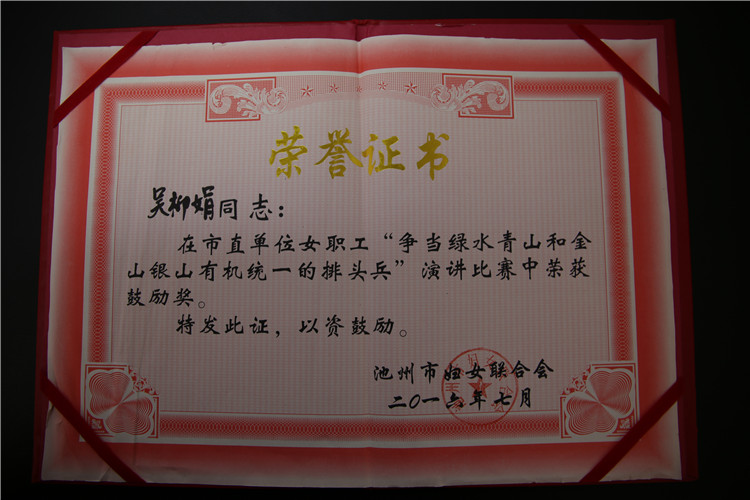 荣誉证书
吴柳娟同志：
在市直单位女职工“争当绿水青山和金
山银山有机统一的排头兵”演讲比赛中荣获
鼓励奖。
特发此证，以资鼓励。
池州市妇女联合会
二〇一六年七月